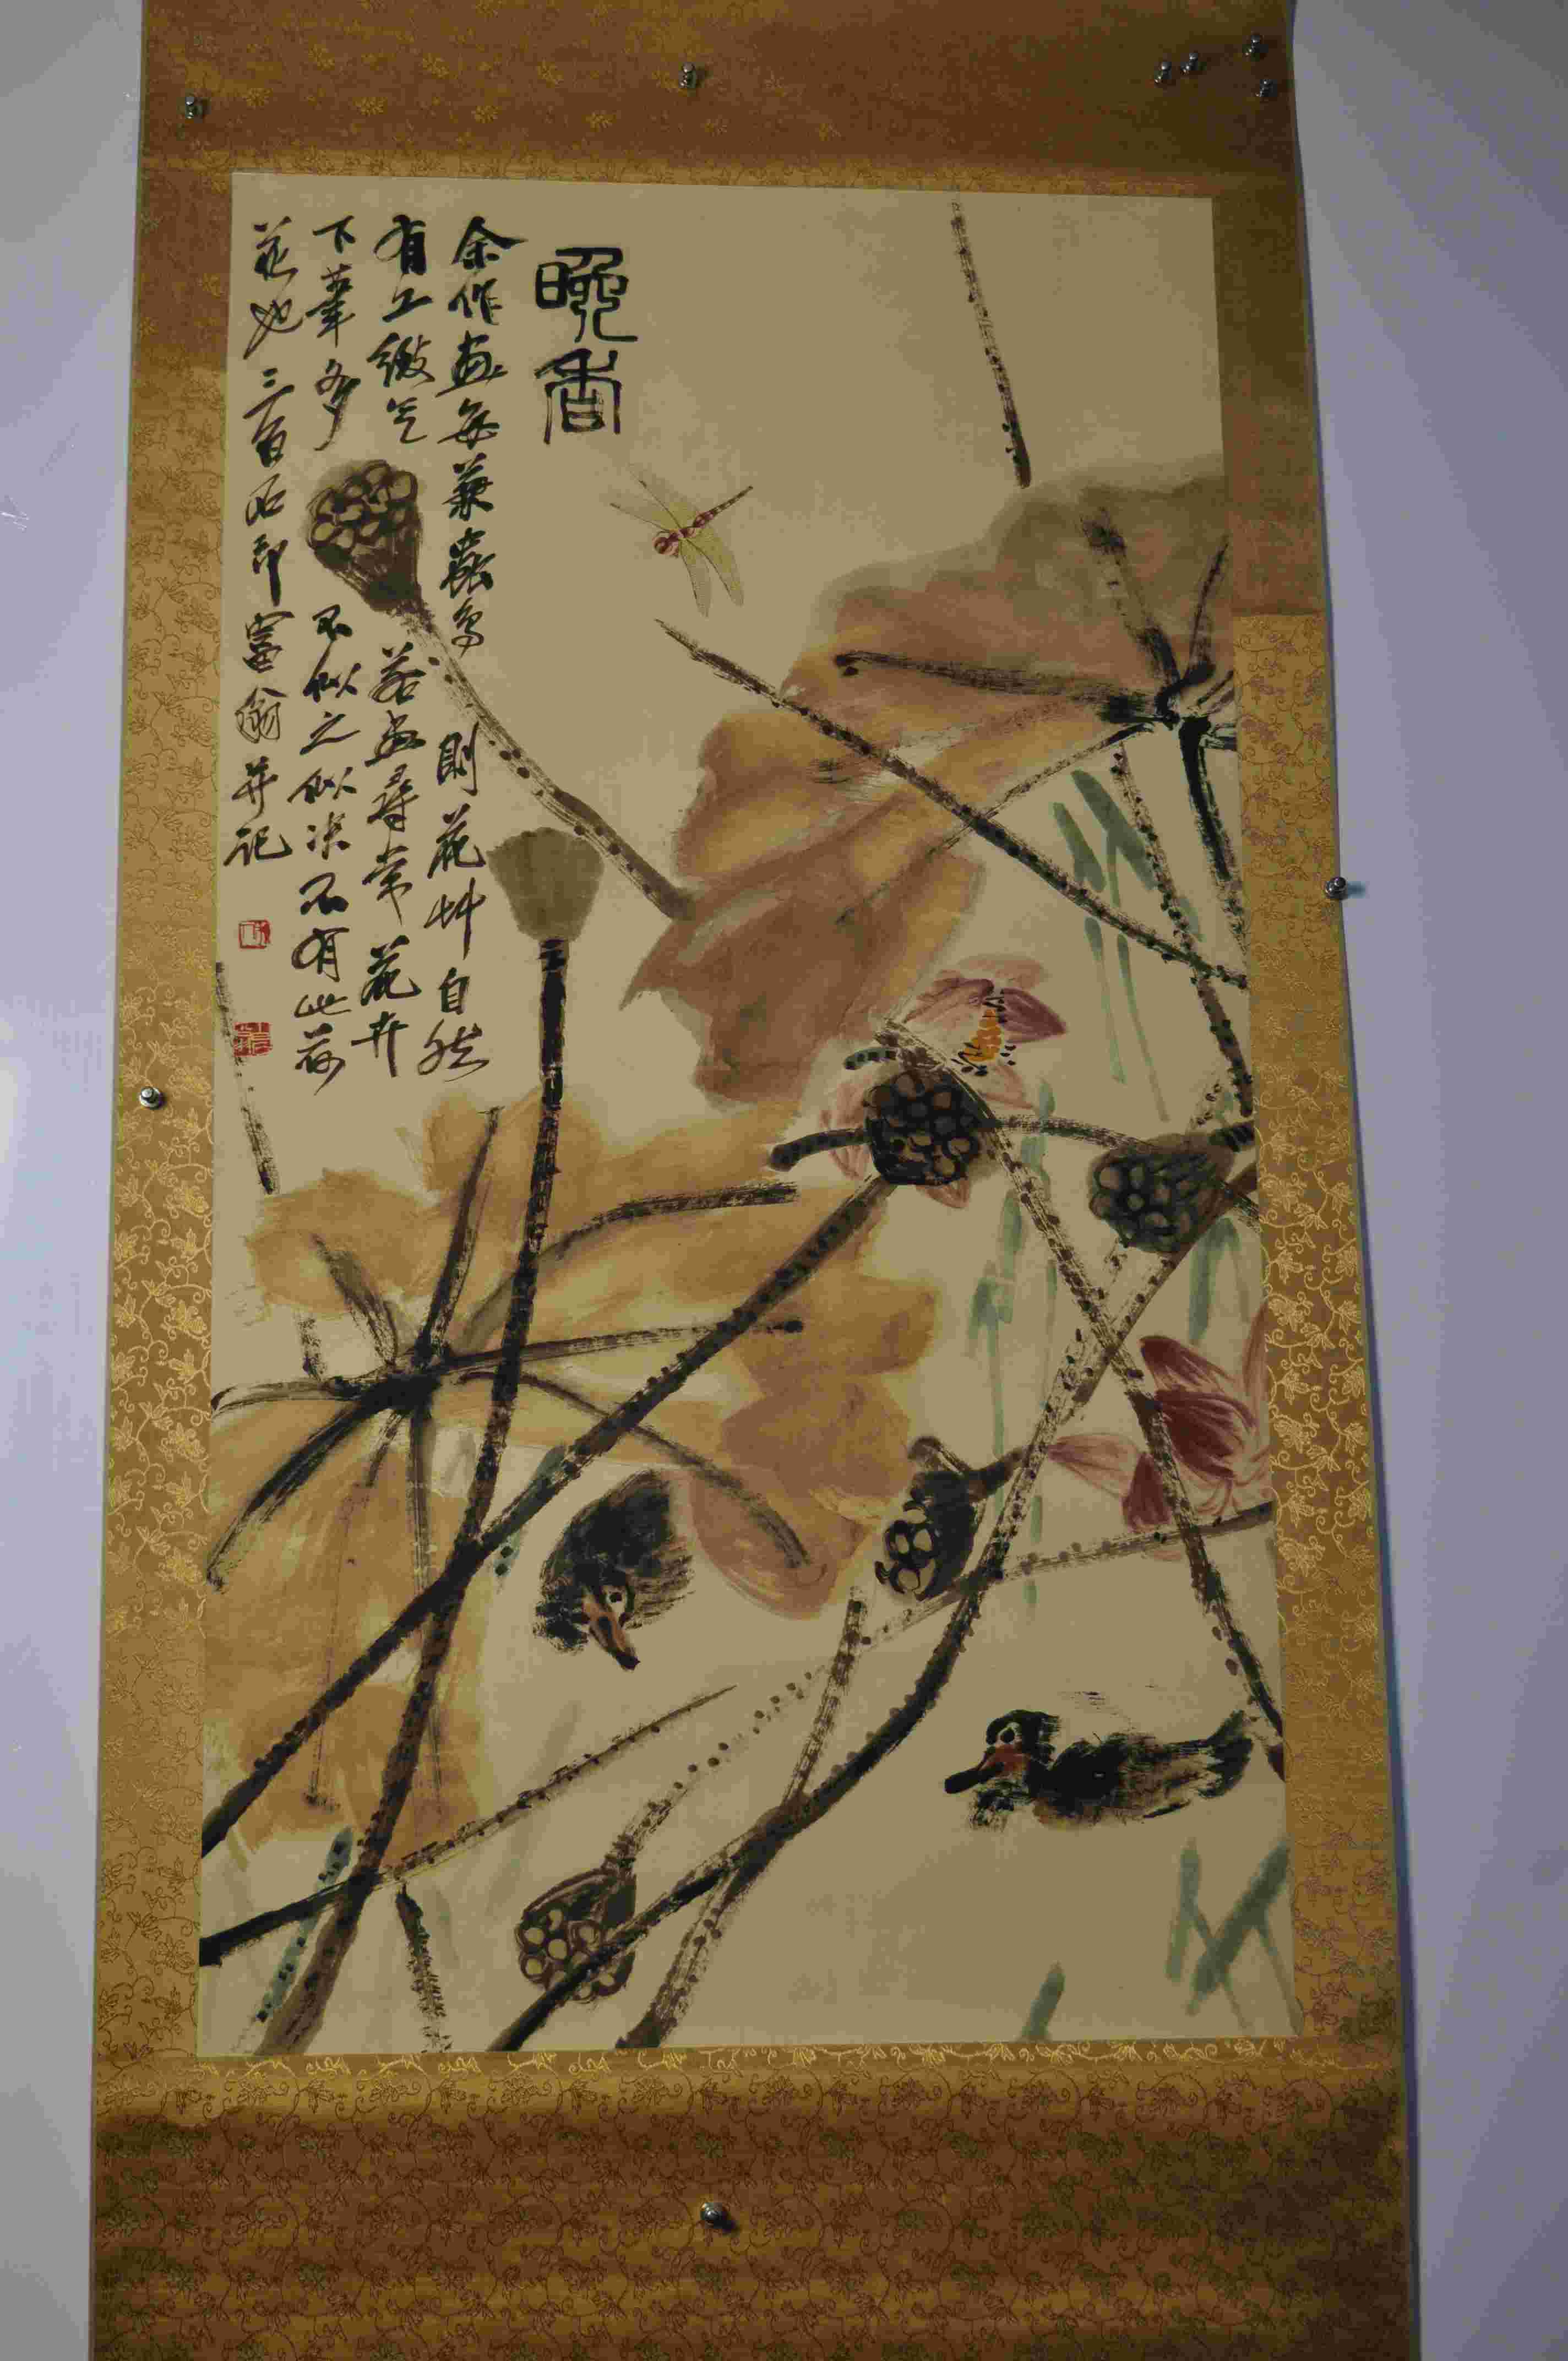 晚香
余作画每兼虫鸟则花艸自然
有工緻气若画寻常花卉
下笔多不似之似决不有此荷
花也三百石印富翁并记